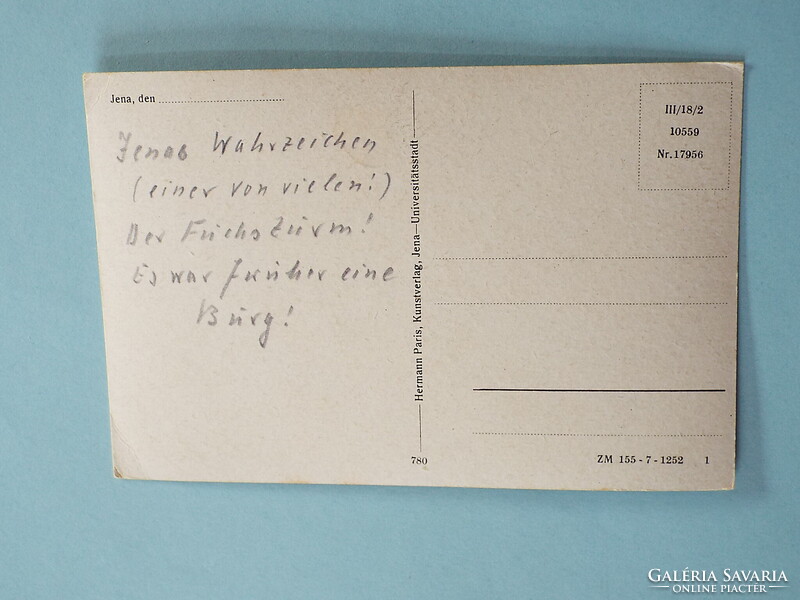 Jena, den
Jenas Wahrzeichen
(einer von vielen!)
Der Fuchsturm!
Es war früher eine
Burg!
Hermann Paris, Kunstverlag, Jena—Universitätsstadt
780
III/18/2
10559
Nr. 17956
ZM 155 - 7 - 1252 1
GALÉRIA SAVARIA
ONLINE PIACTÉR